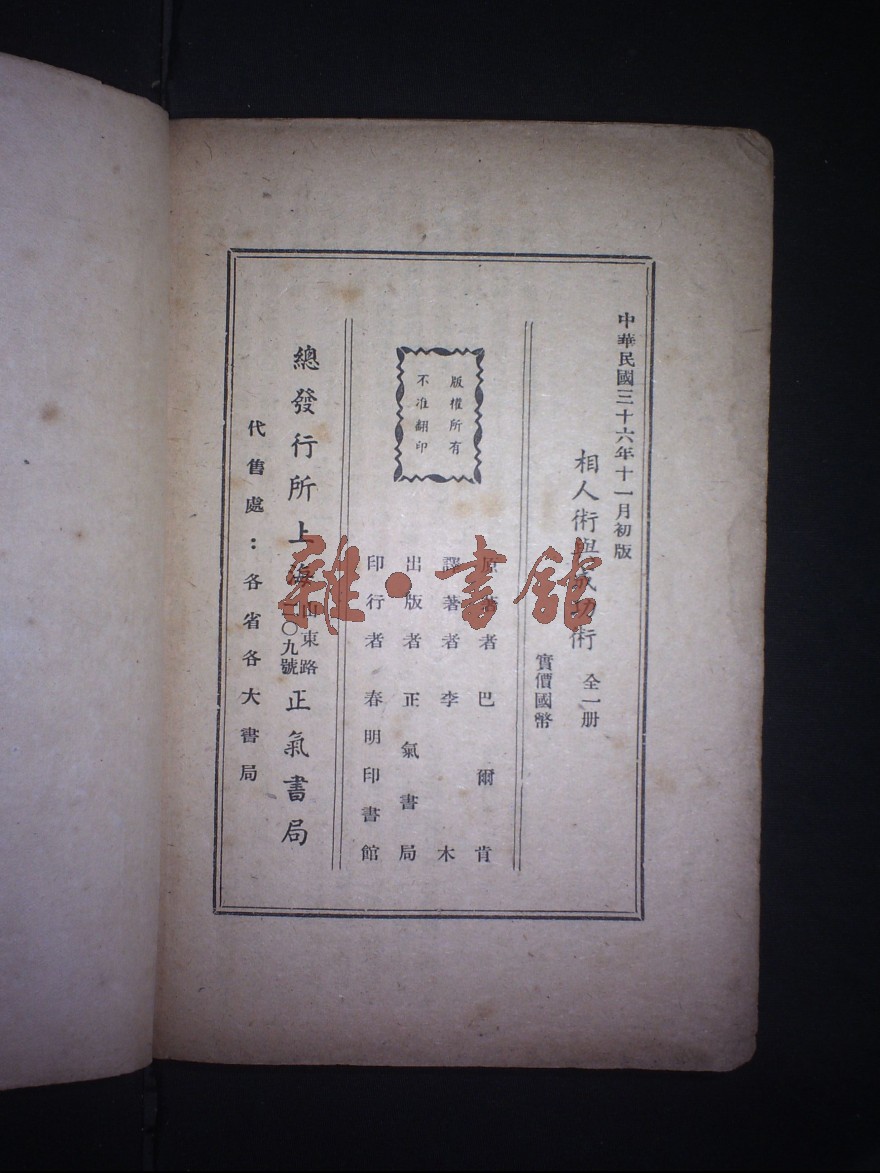 中華民國三十六年十一月初版
相人術與成功術 全一册
實價國幣
版權所有
不准翻印
原著者 巴爾肯
譯著者 李木
出版者 正氣書局
印行者 春明印書館
總發行所 上海 山東路 二〇九號 正氣書局
代售處：各省各大書局
雜·書館